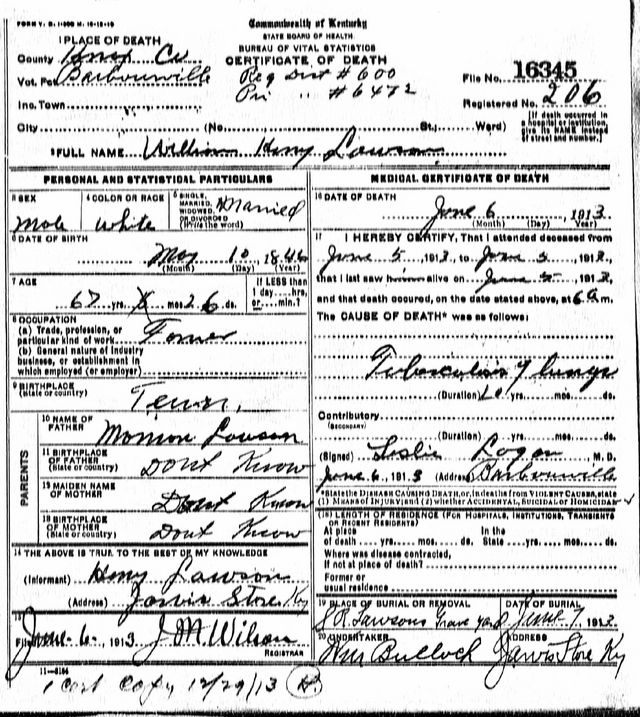 FORM V. S. 1-300 M. 12-12-10
Commonwealth of Kentucky
STATE BOARD OF HEALTH
BUREAU OF VITAL STATISTICS
CERTIFICATE OF DEATH
1 PLACE OF DEATH
County Knox Co
Vot. Pct Barbourville
Reg Dist #600
Pri " #6472
File No. 16345
Registered No. 206
Inc. Town
City (No. St.; Ward)
[If death occurred in a hospital or institution, give its NAME instead of street and number.]
2 FULL NAME William Henry Lawson
PERSONAL AND STATISTICAL PARTICULARS
3 SEX Male
4 COLOR OR RACE White
5 SINGLE, MARRIED, WIDOWED, OR DIVORCED (Write the word) Married
6 DATE OF BIRTH May 10, 1846
(Month) (Day) (Year)
7 AGE 67 yrs. mos. 26 ds.
If LESS than 1 day....hrs. or....min.?
8 OCCUPATION
(a) Trade, profession, or particular kind of work Farmer
(b) General nature of industry business, or establishment in which employed (or employer)
9 BIRTHPLACE (State or country) Tenn.
PARENTS
10 NAME OF FATHER Lawson
11 BIRTHPLACE OF FATHER (State or country) Dont Know
12 MAIDEN NAME OF MOTHER Dont Know
13 BIRTHPLACE OF MOTHER (State or country) Dont Know
14 THE ABOVE IS TRUE TO THE BEST OF MY KNOWLEDGE
(Informant) Henry Lawson
(Address) Jarvis Store Ky
15 Filed June 6, 1913 J M Wilson
REGISTRAR
MEDICAL CERTIFICATE OF DEATH
16 DATE OF DEATH June 6, 1913
(Month) (Day) (Year)
17 I HEREBY CERTIFY, That I attended deceased from
June 5, 1913, to June 5, 1913,
that I last saw him alive on June 5, 1913,
and that death occured, on the date stated above, at 6 a m.
The CAUSE OF DEATH* was as follows:
Tuberculosis of lungs
(Duration) 10 yrs. mos. ds.
Contributory
(SECONDARY)
(Duration) yrs. mos. ds.
(Signed) Leslie Logan, M. D.
June 6, 1913 (Address) Barbourville
*State the DISEASE CAUSING DEATH, or, in deaths from VIOLENT CAUSES, state (1) MEANS OF INJURY; and (2) whether ACCIDENTAL, SUICIDAL or HOMICIDAL
(18) LENGTH OF RESIDENCE (FOR HOSPITALS, INSTITUTIONS, TRANSIENTS OR RECENT RESIDENTS)
At place of death yrs. mos. ds. In the State yrs. mos. ds.
Where was disease contracted, if not at place of death?
Former or usual residence
19 PLACE OF BURIAL OR REMOVAL J R Lawsons Grave yard
DATE OF BURIAL June 7, 1913
20 UNDERTAKER Wm Bullock
ADDRESS Jarvis Store Ky
11-3184
1 cert copy 12/29/13